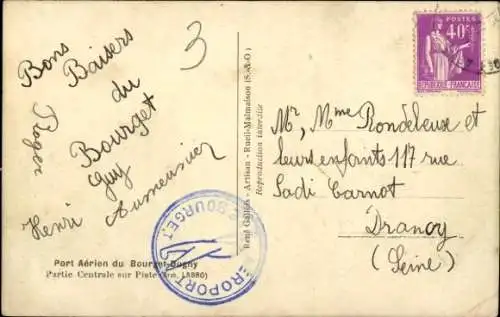 3
Bons
Baisers
du
Bourget
Roger
Guy
Henri Aumeunier
Port Aérien du Bourget-Dugny
Partie Centrale sur Piste
AEROPORT
BOURGET
René Gallois - Artisan - Rueil-Malmaison (S.-&-O)
Reproduction interdite
POSTES
40c
REPUBLIQUE FRANCAISE
Mr, Mme Rondeleuse et
leurs enfants 117 rue
Sadi Carnot
Drancy
(Seine)